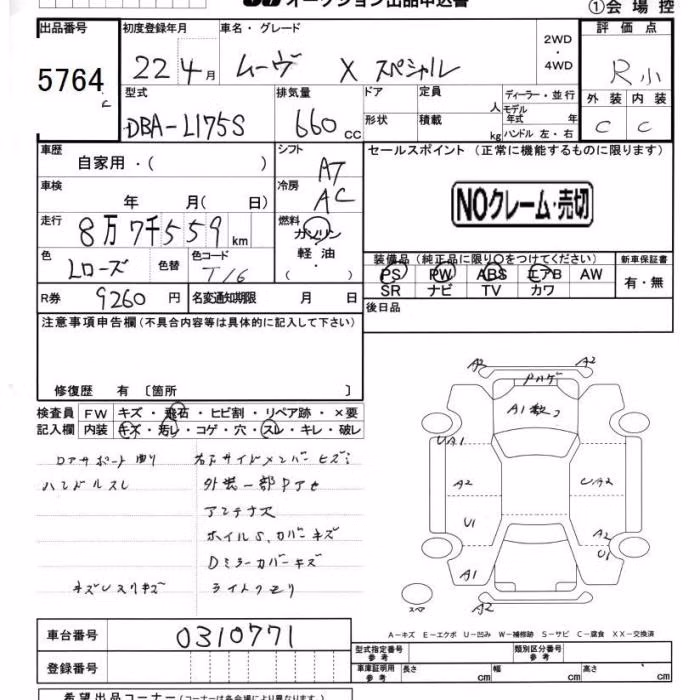 オークション出品申込書
①会場控
出品番号 5764
初度登録年月 22年4月
車名・グレード ムーヴ X スペシャル
2WD・4WD
評価点 R小
外装 C 内装 C
型式 DBA-L175S
排気量 660cc
ドア 形状
定員 人 積載 kg
ディーラー・並行
モデル年式 年
ハンドル 左・右
車歴 自家用・( )
シフト AT
車検 年 月( 日)
冷房 AC
走行 8万7千559km
燃料 ガソリン 軽油 ( ・ )
色 Lローズ 色替
色コード T16
R券 9260円
名変通知期限 月 日
セールスポイント(正常に機能するものに限ります)
NOクレーム・売切
装備品(純正品に限り○をつけてください)
新車保証書
PS PW ABS エアB AW
SR ナビ TV カワ
有・無
後日品
注意事項申告欄(不具合内容等は具体的に記入して下さい)
修復歴 有〔箇所 〕
検査員記入欄
FW キズ・飛石・ヒビ割・リペア跡・×要
内装 キズ・汚レ・コゲ・穴・スレ・キレ・破レ
ハンドルスレ
外装一部
アンテナ
ホイルS、カバーキズ
Dミラーカバーキズ
キズレスリキズ
ライトクモリ
A2 A2
A1数コ
UA1
A2
U1
A1
UA2
A2
U1
A2
スペア
A-キズ E-エクボ U-凹み W-補修跡 S-サビ C-腐食 XX-交換済
車台番号 0310771
登録番号
型式指定番号 参考
類別区分番号 参考
車庫証明用 参考 長さ cm 幅 cm 高さ cm
希望出品コーナー